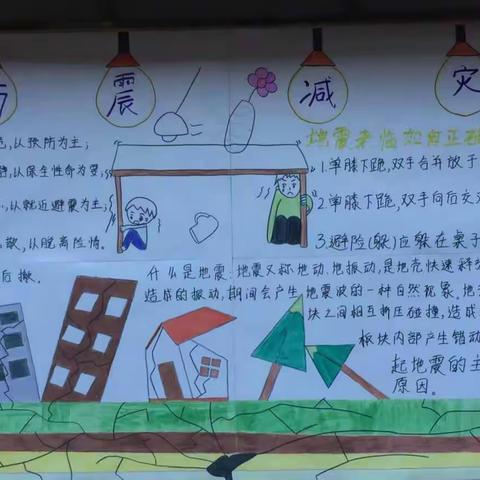 震 减 灾
,从预防为主;
地震来临如何正确
,从保全性命为要;
1.单膝下跪,双手合并放于
,从就近避震为主;
2.单膝下跪,双手向后交
,从脱离险情。
3.避险(躲)应躲在桌子
后撤。
什么是地震:地震又称地动、地振动,是地壳快速释
造成的振动,期间会产生地震波的一种自然现象。地
块之间相互挤压碰撞,造成
板块内部产生错动
起地震的主
原因。